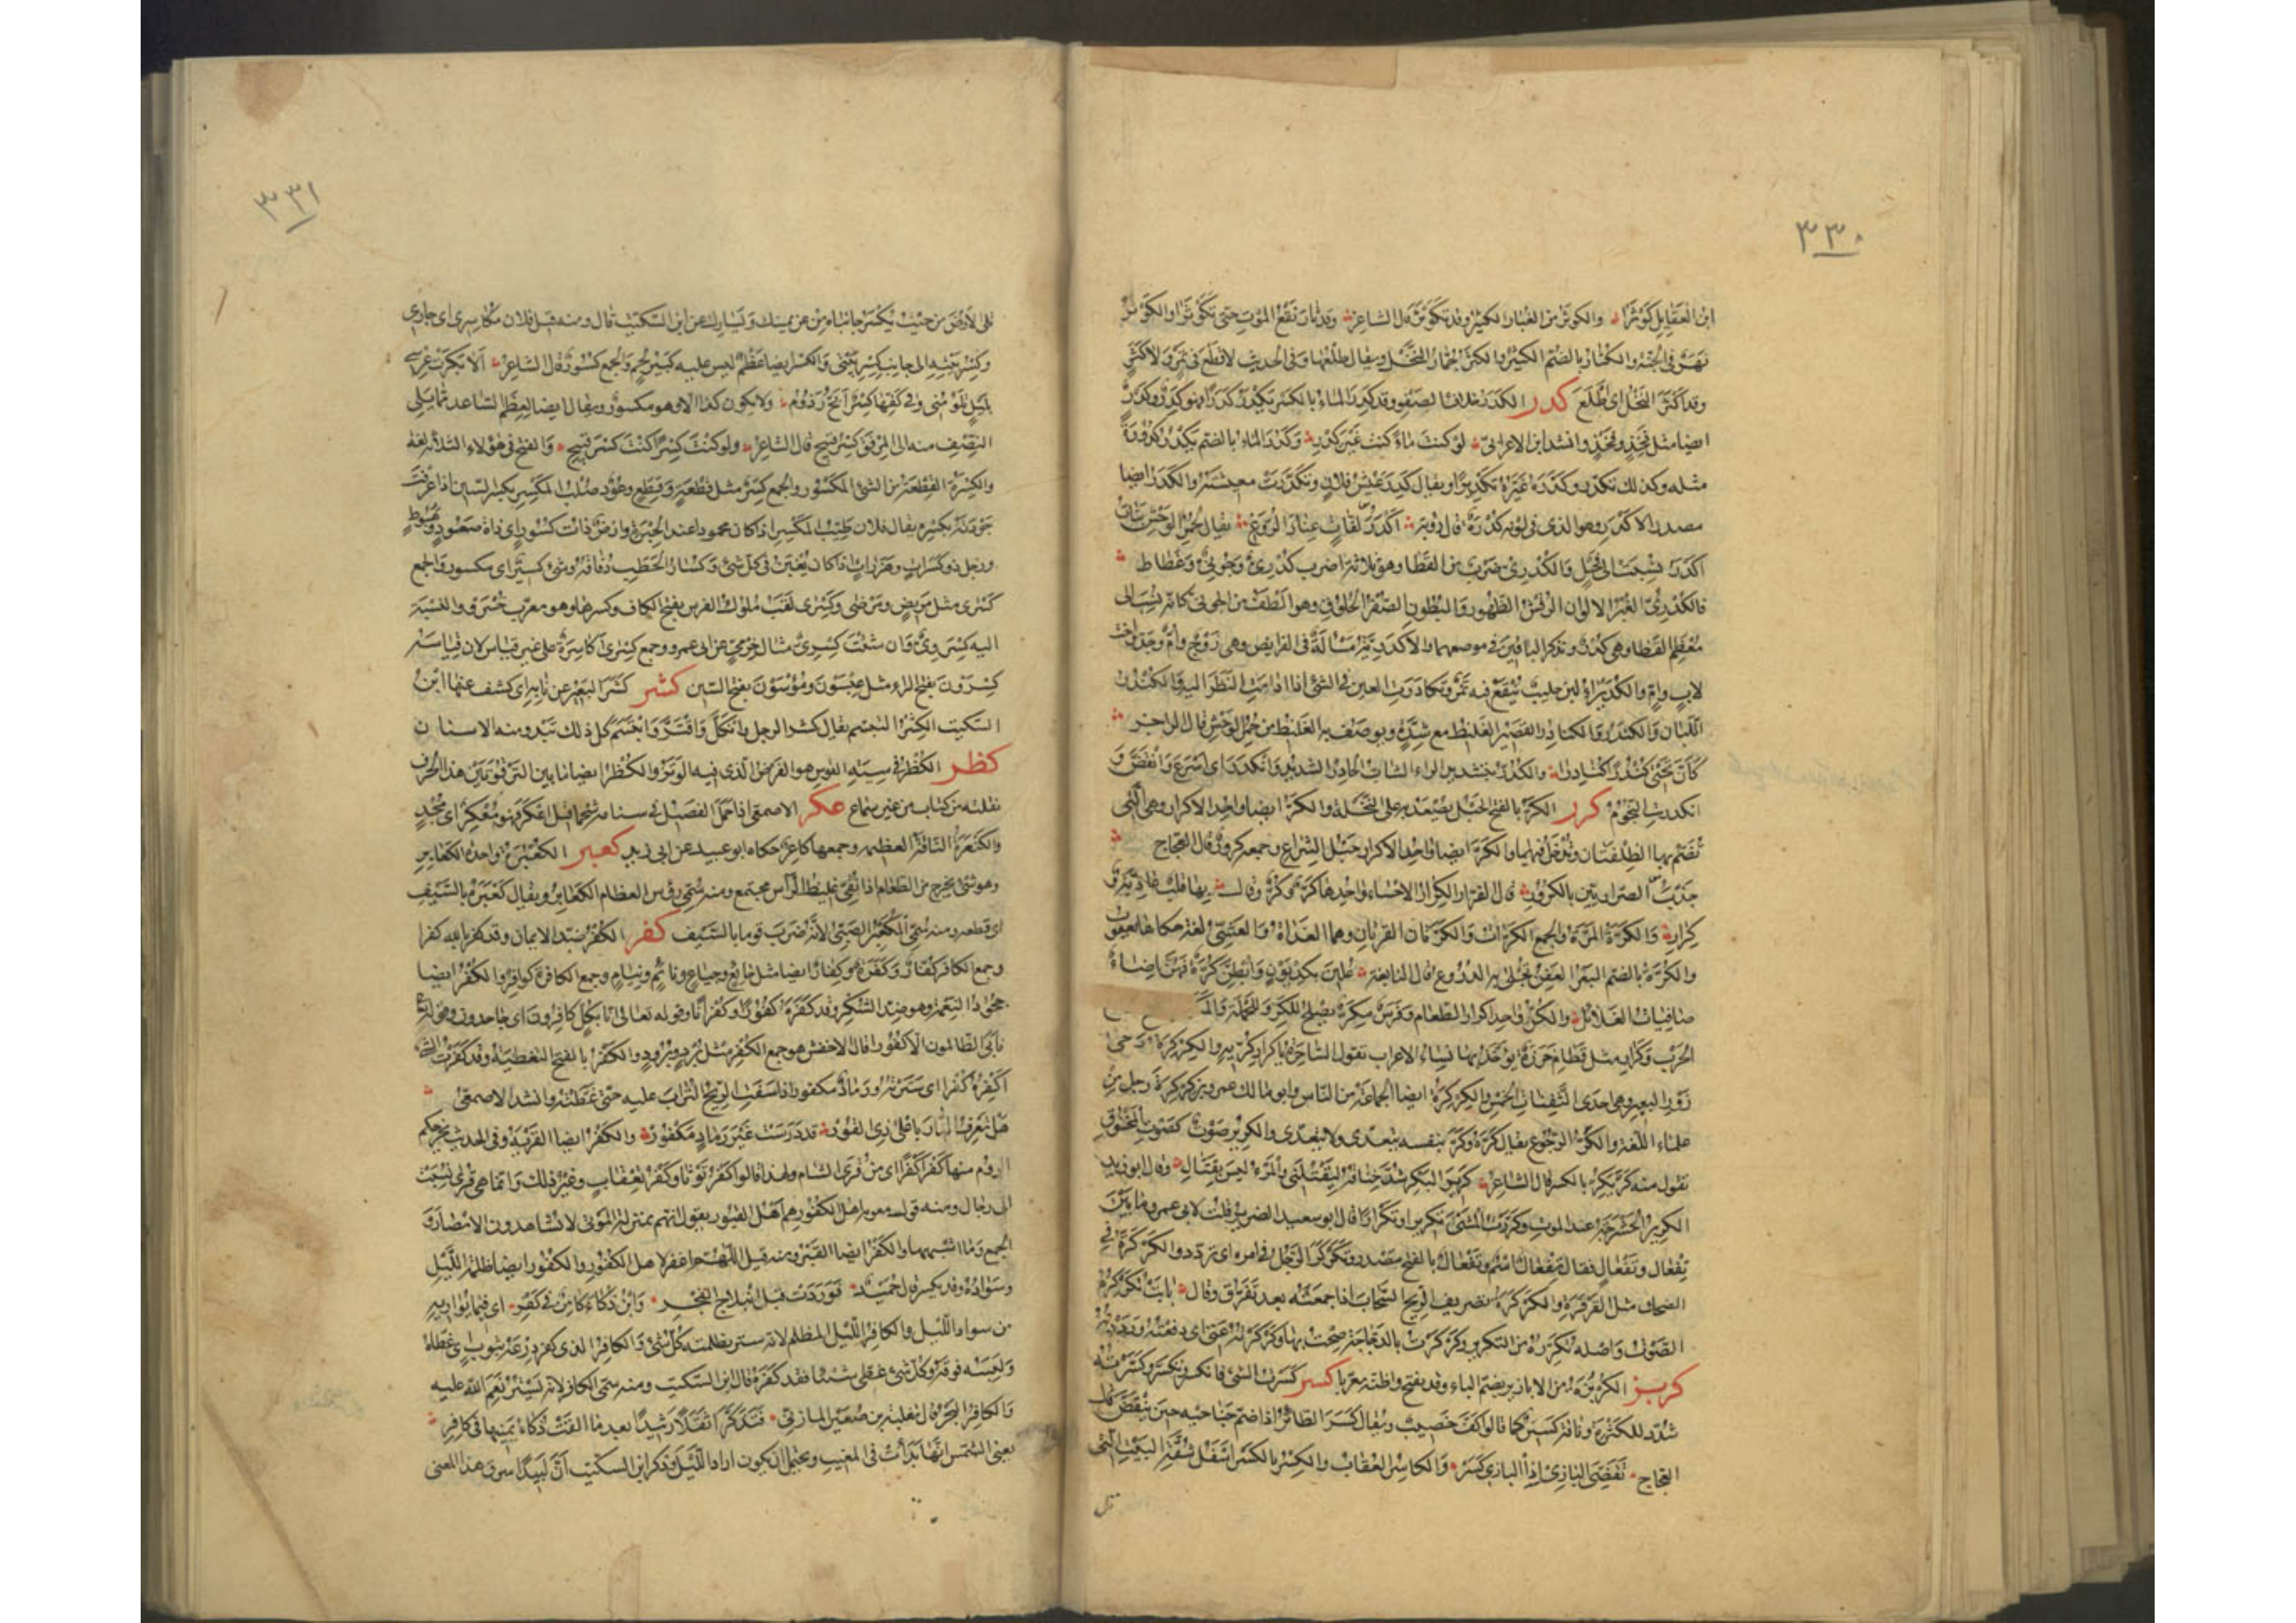 ٣٣٠
ابن العقايل كوثرا والكوثر من الغبار الكثير وقد تكوثر قال الشاعر وقد ثار نقع الموت حتى تكوثرا والكوثر
نهر في الجنة والكثار بالضم الكثير والكثر جمار النخل ويقال طلعها وفي الحديث لا قطع في ثمر ولا كثر
وقد اكثر النخل اى اطلع كدر الكدر خلاف الصفو وقد كدر الماء بالكسر يكدر كدرا فهو كدر وكدر
ايضا مثل فخذ وفخذ وانشد ابن الاعرابى لو كنت ماء كنت غير كدر وكدر الماء بالضم يكدر كدورة
مثله وكذلك تكدر وكدره غيره تكديرا ويقال كدر عيش فلان وتكدرت معيشته والكدر ايضا
مصدر الاكدر وهو الذى في لونه كدرة قال رؤبة اكدر لفاف عناد الروغ يقال لحمر الوحش بنات
اكدر نسبت الى فحل والكدرى ضرب من القطا وهو ثلاثة اضرب كدرى وجونى وغطاط
فالكدرى الغبر الالوان الرقش الظهور والبطون الصفر الحلوق وهو الطف من الجونى كانه نسب الى
معظم القطا وهى كدر ونذكر الباقين في موضعهما والاكدرية مسألة في الفرايض وهى زوج وام وجد واخت
لاب وام والكديراء لبن حليب ينقع فيه تمر
اللبان والكندر والكنادر القصير الغليظ مع شدة ويوصف به الغليظ من حمر الوحش قال الراجز
كان تحتى كندرا كنادرا والكدر بتشديد الراء الشاب الحادر الشديد وانكدر اى اسرع وانقض و
انكدرت النجوم كرر الكر بالفتح الحبل يصعد به على النخلة والكر ايضا واحد الاكرار وهى التى
تضم بها الظلفتان وتدخل فيهما والكر ايضا واحد الاكرار حبل الشراع وجمعه كرور قال العجاج
جذب الصراريين بالكرور قال الفراء الكرار الاحساء واحدها كر وكر وقال بها قلب عادية و
كرار والكرة المرة والجمع الكرات والكرتان القرتان وهما الغداة والعشى لغة حكاها يعقوب
والكرة بالضم البعر العفن تجلى به الدروع قال النابغة علين بكديون وابطن كرة فهن اضاء
صافيات الغلائل والكر واحد اكرار الطعام وفرس مكر يصلح للكر والحملة والمـ
الحرب وكرار مثل قطام خرزة يؤخذ بها نساء الاعراب تقول الساحرة يا كرار كريه والكركرة رحى
زور البعير وهى احدى الثفنات الخمس والكركرة ايضا الجماعة من الناس وابو مالك عمرو بن كركرة رجل من
علماء اللغة والكر الرجوع يقال كره وكر بنفسه يتعدى ولا يتعدى والكرير صوت كصوت المخنوق
تقول منه كر يكر بالكسر قال الشاعر يكر كرير البكر شد خناقه ليقتلنى والمرء ليس بقتال وقال ابو زيد
الكرير الحشرجة عند الموت وكررت الشئ تكريرا وتكرارا قال ابو سعيد الضرير قلت لابى عمرو ما بين
تفعال وتفعال فقال تفعال اسم وتفعال بالفتح مصدر وتكركر الرجل في امره اى تردد والكركرة في
الضحك مثل القرقرة والكركرة تصريف الريح السحاب اذا جمعته بعد تفرق وقال باتت تكركره
الصوت واصله تكرره من التكرير وكركرت بالدجاجة صحت بها وكركرته عنى اى دفعته ورددته
كزبر الكزبرة من الابازير بضم الباء وقد يفتح واظنه معربا كسر كسرت الشئ فانكسر وتكسر وكسرته
شدد للكثرة وناقة كسير كما قالوا كف خضيب ويقال كسر الطائر اذا ضم جناحيه حين ينقض قال
العجاج تقضى البازى اذا البازى كسر والكاسر العقاب والكسر بالكسر اسفل شقة البيت التى
٣٣١
تلى الارض من حيث يكسر جانباه من عن يمينك ويسارك عن ابن السكيت قال ومنه قيل فلان مكاسرى اى جارى
وكسر بيته الى جانب كسر بيتى والكسر ايضا عظم ليس عليه كبير لحم والجمع كسور قال الشاعر الا بكرت عرسى
بليل تلومنى وفي كفها كسر ابح رذوم ولا يكون كذا الا وهو مكسور ويقال ايضا لعظم الساعد مما يلى
النصف منه الى المرفق كسر قبيح قال الشاعر ولو كنت كسرا كنت كسر قبيح والفتح في هؤلاء الثلاثة لغة
والكسرة القطعة من الشئ المكسور والجمع كسر مثل قطعة وقطع وعود صلب المكسر بكسر السين اذا عرفت
جودته بكسره يقال فلان طيب المكسر اذا كان محمودا عند الخبرة وارض ذات كسور اى ذات صعود وهبوط
ورجل ذو كسرات وهزرات اذا كان يغبن في كل شئ وكسار الحطب دقاقه وشئ كسير اى مكسور والجمع
كسرى مثل مريض ومرضى وكسرى لقب ملوك الفرس بفتح الكاف وكسرها وهو معرب خسرو والنسبة
اليه كسروى وان شئت كسرى مثال حرمى عن ابى عمرو وجمع كسرى اكاسرة على غير قياس لان قياسه
كسرون بفتح الراء مثل عيسون وموسون بفتح السين كشر كشر البعير عن نابه اى كشف عنها ابن
السكيت الكشر التبسم يقال كشر الرجل وانكل وافتر وابتسم كل ذلك تبدو منه الاسنان
كظر الكظر في سية القوس هو الفرض الذى فيه الوتر والكظر ايضا ما بين الترقوتين هذا الحرف
نقلته من كتاب من غير سماع عكر الاصمعى اذا حمل الفصيل في سنامه شحما قيل اعكر فهو معكر اى مجذ
والكنعرة الناقة العظيمة وجمعها كناعر حكاه ابو عبيد عن ابى زيد كعبر الكعبرة واحدة الكعابر
وهو شئ يخرج من الطعام اذا نقى غليظ الرأس مجتمع ومنه سمى رؤس العظام الكعابر ويقال كعبره بالسيف
اى قطعه ومنه سمى المكعبر الضبى لانه ضرب قوما بالسيف كفر الكفر ضد الايمان وقد كفر بالله كفرا
وجمع الكافر كفار وكفرة وكفار ايضا مثل جائع وجياع ونائم ونيام وجمع الكافرة كوافر والكفر ايضا
جحود النعمة وهو ضد الشكر وقد كفره كفورا وكفرانا وقوله تعالى انا بكل كافرون اى جاحدون وقوله
فابى الظالمون الا كفورا قال الاخفش هو جمع الكفر مثل برد وبرود والكفر بالفتح التغطية وقد كفرت الشئ
اكفره كفرا اى سترته ورماد مكفور اذا سفت الريح التراب عليه حتى غطته وانشد الاصمعى
هل تعرف الدار باعلى ذى القور قد درست غير رماد مكفور والكفر ايضا القرية وفي الحديث يخرجكم
الروم منها كفرا كفرا اى من قرى الشام ولهذا قالوا كفر توثا وكفر تعقاب وغير ذلك وانما هى قرى نسبت
الى رجال ومنه قول معوية اهل الكفور هم اهل القبور يقول انهم بمنزلة الموتى لا يشاهدون الامصار و
الجمع وما اشبهها والكفر ايضا القبر ومنه قيل اللهم اغفر لاهل الكفور والكفور ايضا ظلمة الليل
وسواده وقد يكسر قال حميد فوردت قبل انبلاج الفجر وابن ذكاء كامن في كفر اى فيما يواريه
من سواد الليل والكافر الليل المظلم لانه ستر بظلمته كل شئ والكافر الذى كفر درعه بثوب اى غطاه
ولبسه فوقه وكل شئ غطى شيئا فقد كفره قال ابن السكيت ومنه سمى الكافر لانه يستر نعم الله عليه
والكافر البحر قال ثعلبة بن صعير المازنى فتذكرا ثقلا رثيدا بعد ما القت ذكاء يمينها في كافر
يعنى الشمس انها بدأت في المغيب ويحتمل ان يكون اراد الليل وذكر ابن السكيت ان لبيدا سرق هذا المعنى